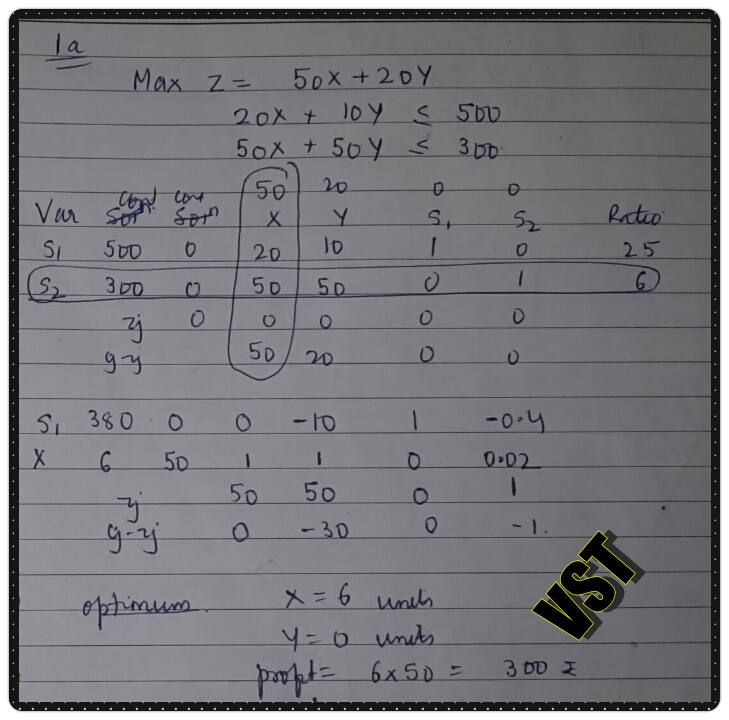 1a
Max Z = 50X + 20Y
20X + 10Y ≤ 500
50X + 50Y ≤ 300
50 20 0 0
Var X Y S₁ S₂ Ratio
S₁ 500 0 20 10 1 0 25
S₂ 300 0 50 50 0 1 6
zj 0 0 0 0 0
cj-zj 50 20 0 0
S₁ 380 0 0 -10 1 -0.4
X 6 50 1 1 0 0.02
zj 50 50 0 1
cj-zj 0 -30 0 -1.
optimum. X = 6 units
Y = 0 units
profit = 6x50 = 300
VST